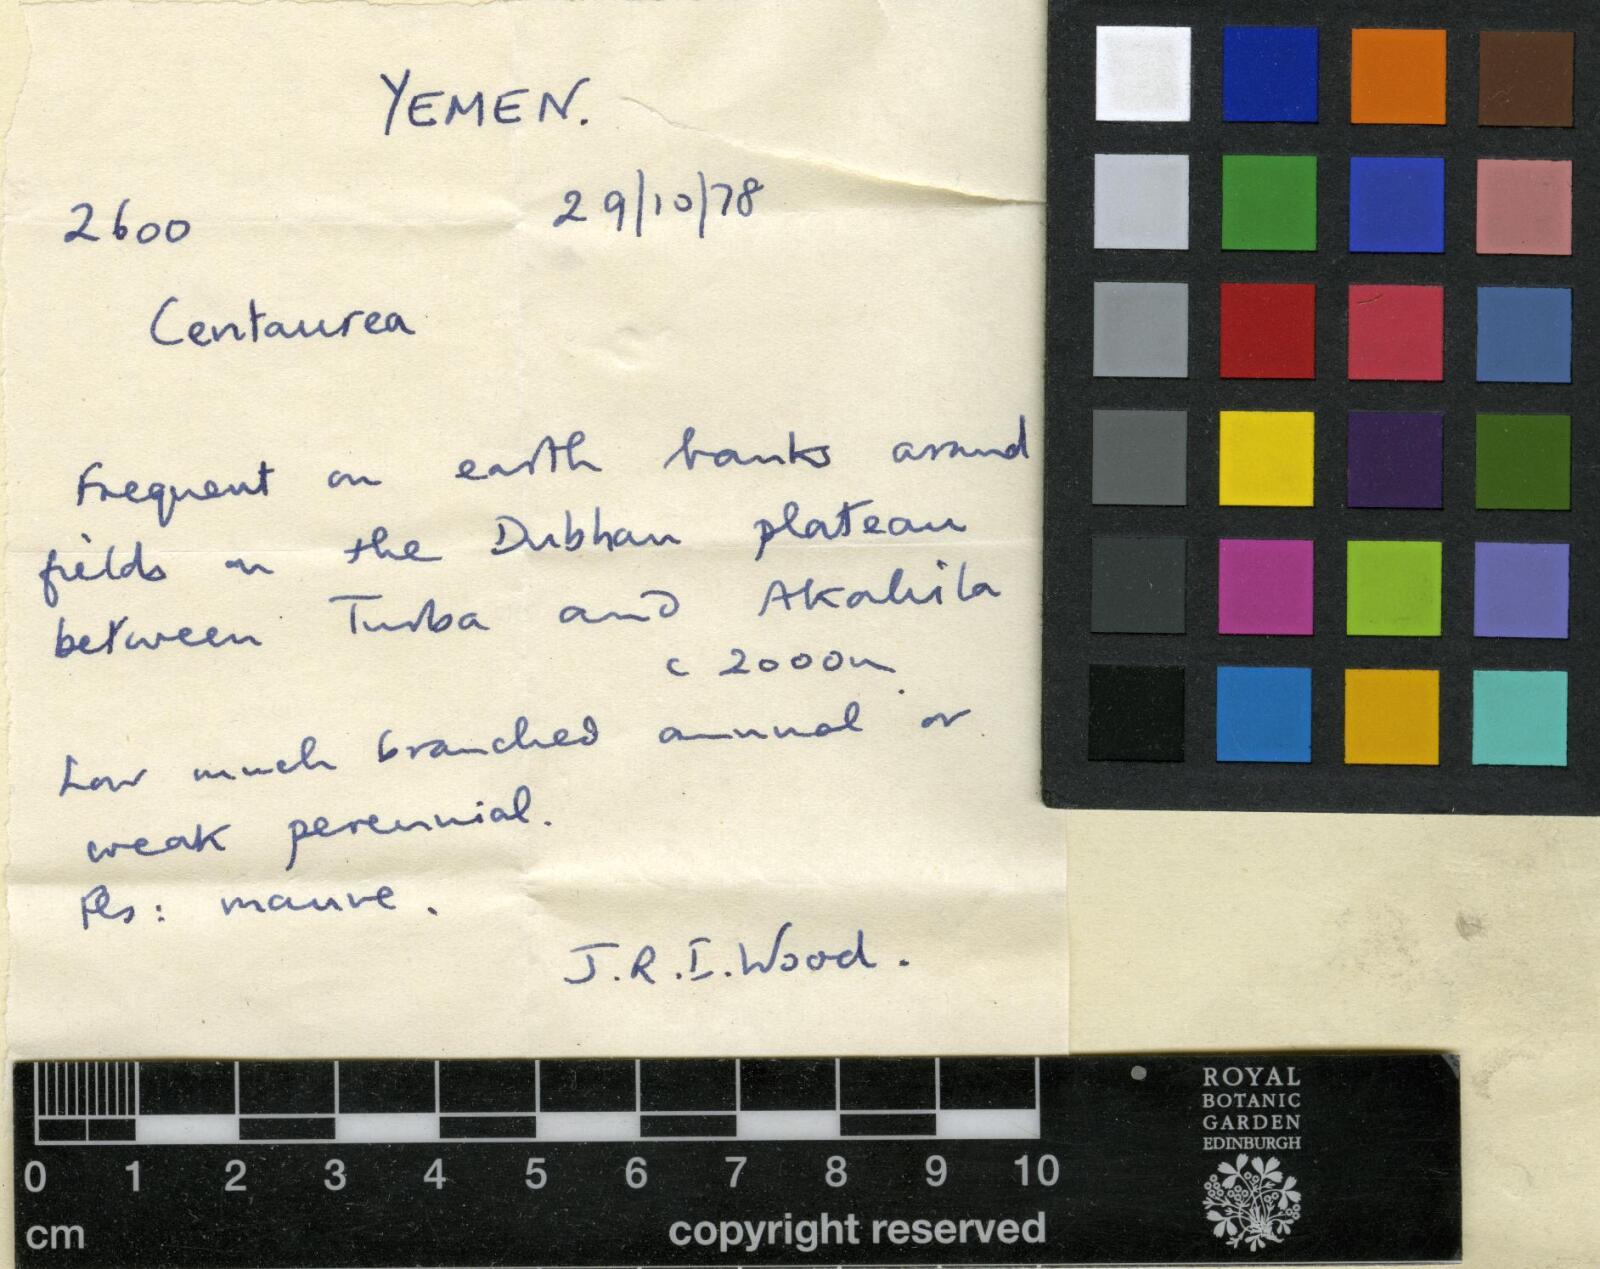 YEMEN.
2600 29/10/78
Centaurea
Frequent on earth banks around
fields on the Dubhan plateau
between Turba and Akahila
c 2000m.
Low much branched annual or
weak perennial.
Fls: mauve.
J.R.I. Wood.
ROYAL
BOTANIC
GARDEN
EDINBURGH
0 1 2 3 4 5 6 7 8 9 10
cm copyright reserved